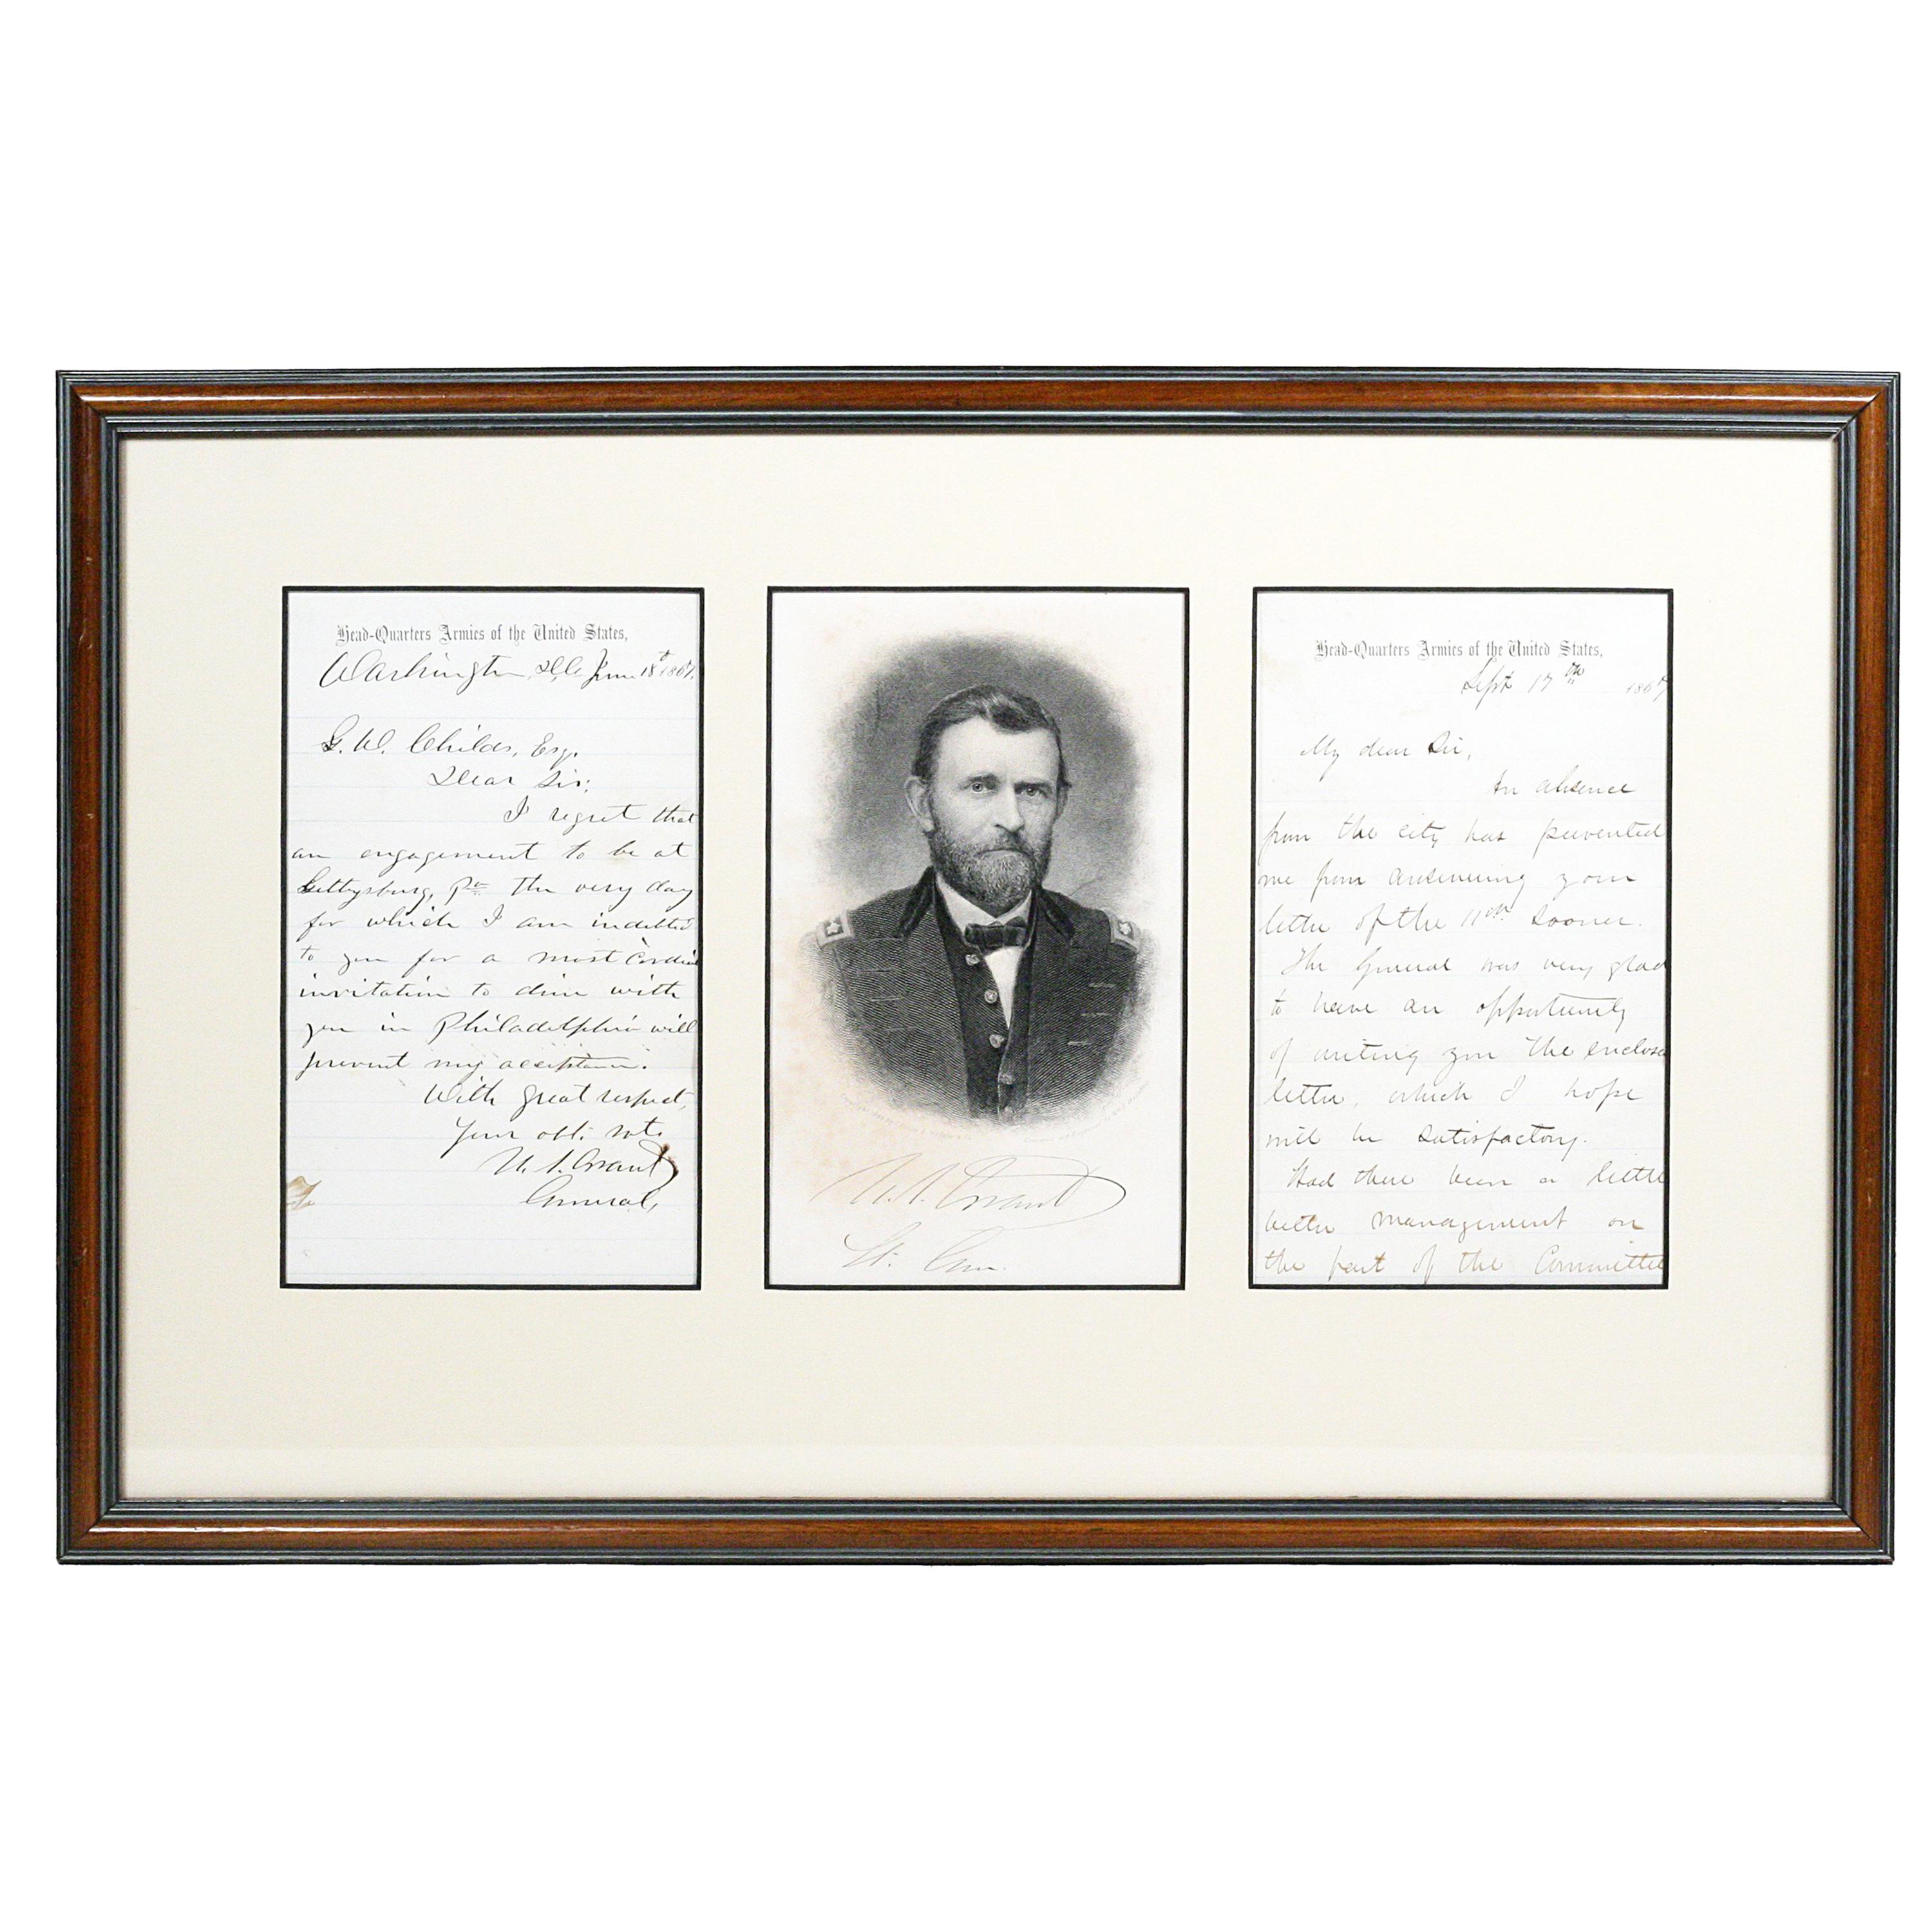 Head-Quarters Armies of the United States,
Washington, D.C. June 18th 1867.
G. W. Childs, Esq.
Dear Sir;
I regret that
an engagement to be at
Gettysburg, Pa the very day
for which I am indebted
to you for a most cordial
invitation to dine with
you in Philadelphia will
prevent my acceptance.
With great respect,
Your obt. svt.
U. S. Grant
General,
U. S. Grant
Lt. Gen.
Head-Quarters Armies of the United States,
Sept 17th 1867
My dear Sir,
An absence
from the city has prevented
me from answering your
letter of the 11th sooner.
The General was very glad
to have an opportunity
of writing you the enclosed
letter, which I hope
will be satisfactory.
Had there been a little
better management on
the part of the Committee